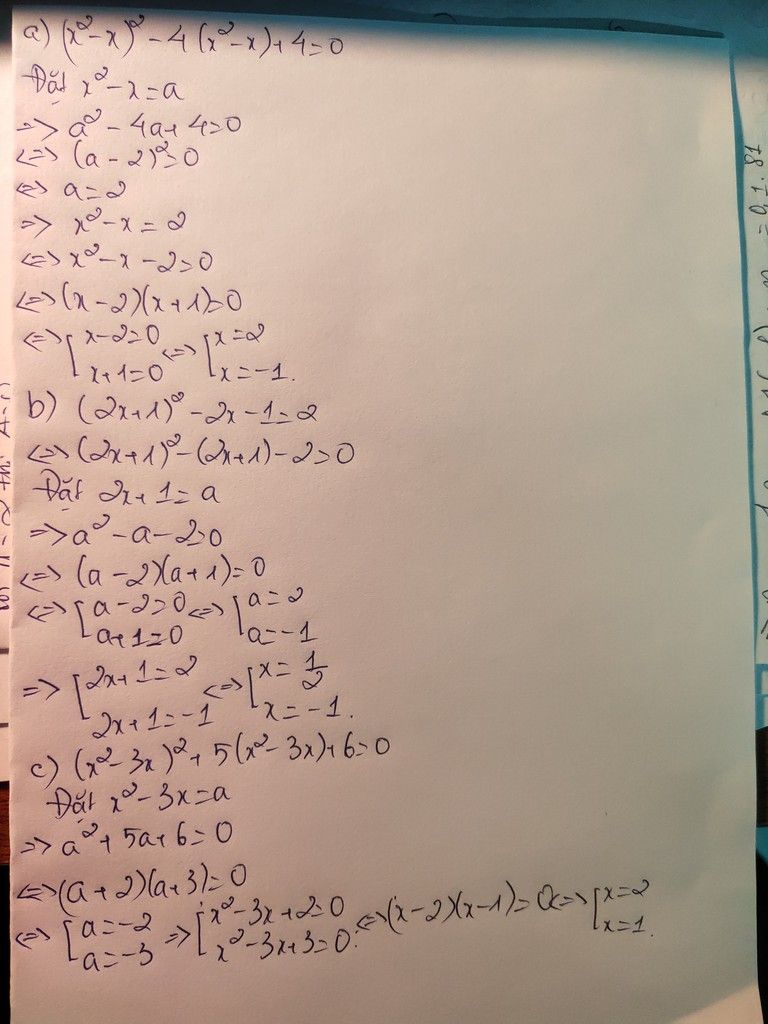 a) (x² - x)² - 4(x² - x) + 4 = 0
Đặt x² - x = a
=> a² - 4a + 4 = 0
<=> (a - 2)² = 0
<=> a = 2
=> x² - x = 2
<=> x² - x - 2 = 0
<=> (x - 2)(x + 1) = 0
<=> [x - 2 = 0 <=> [x = 2
x + 1 = 0 x = -1.
b) (2x + 1)² - 2x - 1 = 2
<=> (2x + 1)² - (2x + 1) - 2 = 0
Đặt 2x + 1 = a
=> a² - a - 2 = 0
<=> (a - 2)(a + 1) = 0
<=> [a - 2 = 0 <=> [a = 2
a + 1 = 0 a = -1
=> [2x + 1 = 2 <=> [x = 1/2
2x + 1 = -1 x = -1.
c) (x² - 3x)² + 5(x² - 3x) + 6 = 0
Đặt x² - 3x = a
=> a² + 5a + 6 = 0
<=> (a + 2)(a + 3) = 0
<=> [a = -2 => [x² - 3x + 2 = 0 <=> (x - 2)(x - 1) = 0 <=> [x = 2
a = -3 x² - 3x + 3 = 0. x = 1.